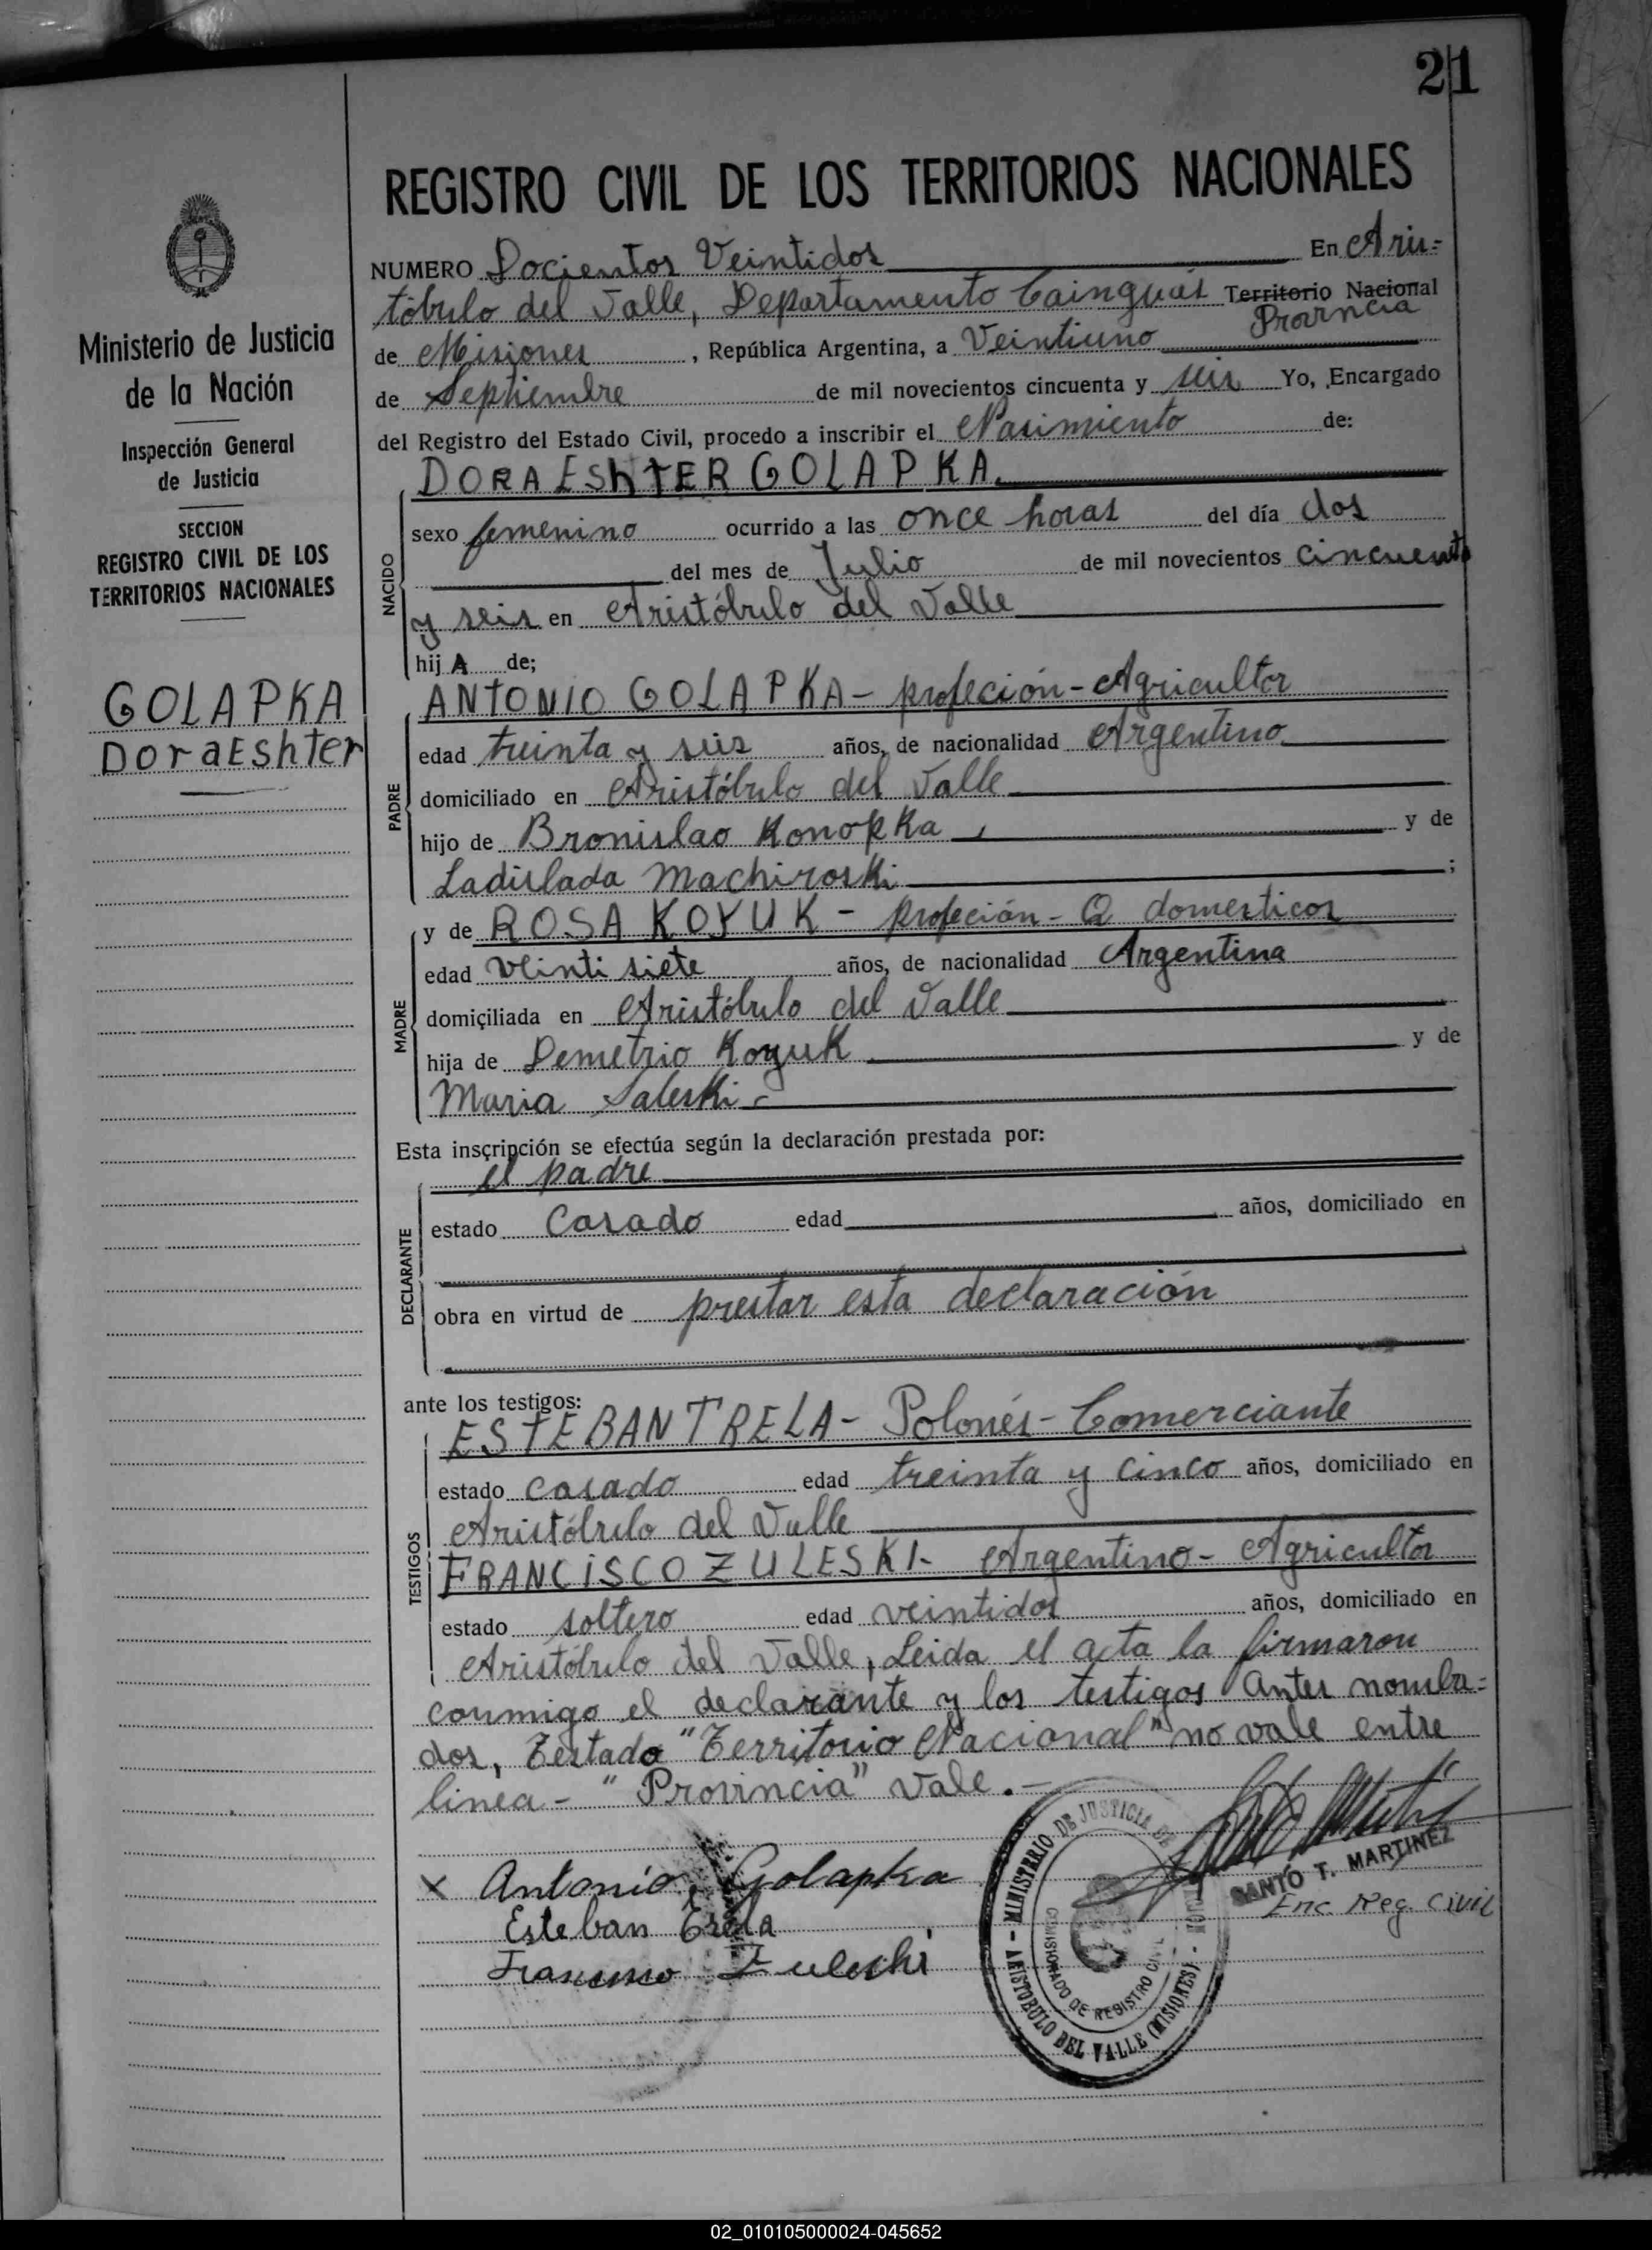 21
REGISTRO CIVIL DE LOS TERRITORIOS NACIONALES
Ministerio de Justicia
de la Nación
Inspección General
de Justicia
SECCION
REGISTRO CIVIL DE LOS
TERRITORIOS NACIONALES
GOLAPKA
DoraEshter
NUMERO Docientos Veintidos En Aris=
tóbulo del Valle, Departamento Cainguás Territorio Nacional
Provincia
de Misiones , República Argentina, a Veintiuno
de Septiembre de mil novecientos cincuenta y seis Yo, Encargado
del Registro del Estado Civil, procedo a inscribir el Nasimiento de:
DORA ESHTER GOLAPKA.
NACIDO
sexo femenino ocurrido a las once horas del día dos
del mes de Julio de mil novecientos cincuenta
y seis en Aristóbulo del Valle
hij A de;
PADRE
ANTONIO GOLAPKA - profeción - Agricultor
edad treinta y seis años, de nacionalidad Argentino
domiciliado en Aristóbulo del Valle
hijo de Bronislao Konopka y de
Ladislada Machiroski ;
MADRE
y de ROSA KOYUK - profeción - Q domesticos
edad veinti siete años, de nacionalidad Argentina
domiciliada en Aristóbulo del Valle
hija de Demetrio Koyuk y de
Maria Saleski -
Esta inscripción se efectúa según la declaración prestada por:
el padre
DECLARANTE
estado Casado edad años, domiciliado en
obra en virtud de prestar esta declaración
ante los testigos:
TESTIGOS
ESTEBAN TRELA - Polonés - Comerciante
estado casado edad treinta y cinco años, domiciliado en
Aristóbulo del Valle
FRANCISCO ZULESKI - Argentino - Agricultor
estado soltero edad veintidos años, domiciliado en
Aristóbulo del Valle, Leida el acta la firmaron
conmigo el declarante y los testigos antes nombra=
dos, Testado "Territorio Nacional" no vale entre
linea - "Provincia" vale. -
x Antonio Golapka
Esteban Trela
Francisco Zuleski
MINISTERIO DE JUSTICIA DE NACION
COMISIONADO DE REGISTRO CIVIL
ARISTOBULO DEL VALLE (MISIONES)
SANTO T. MARTINEZ
Enc Reg. Civil
02_010105000024-045652